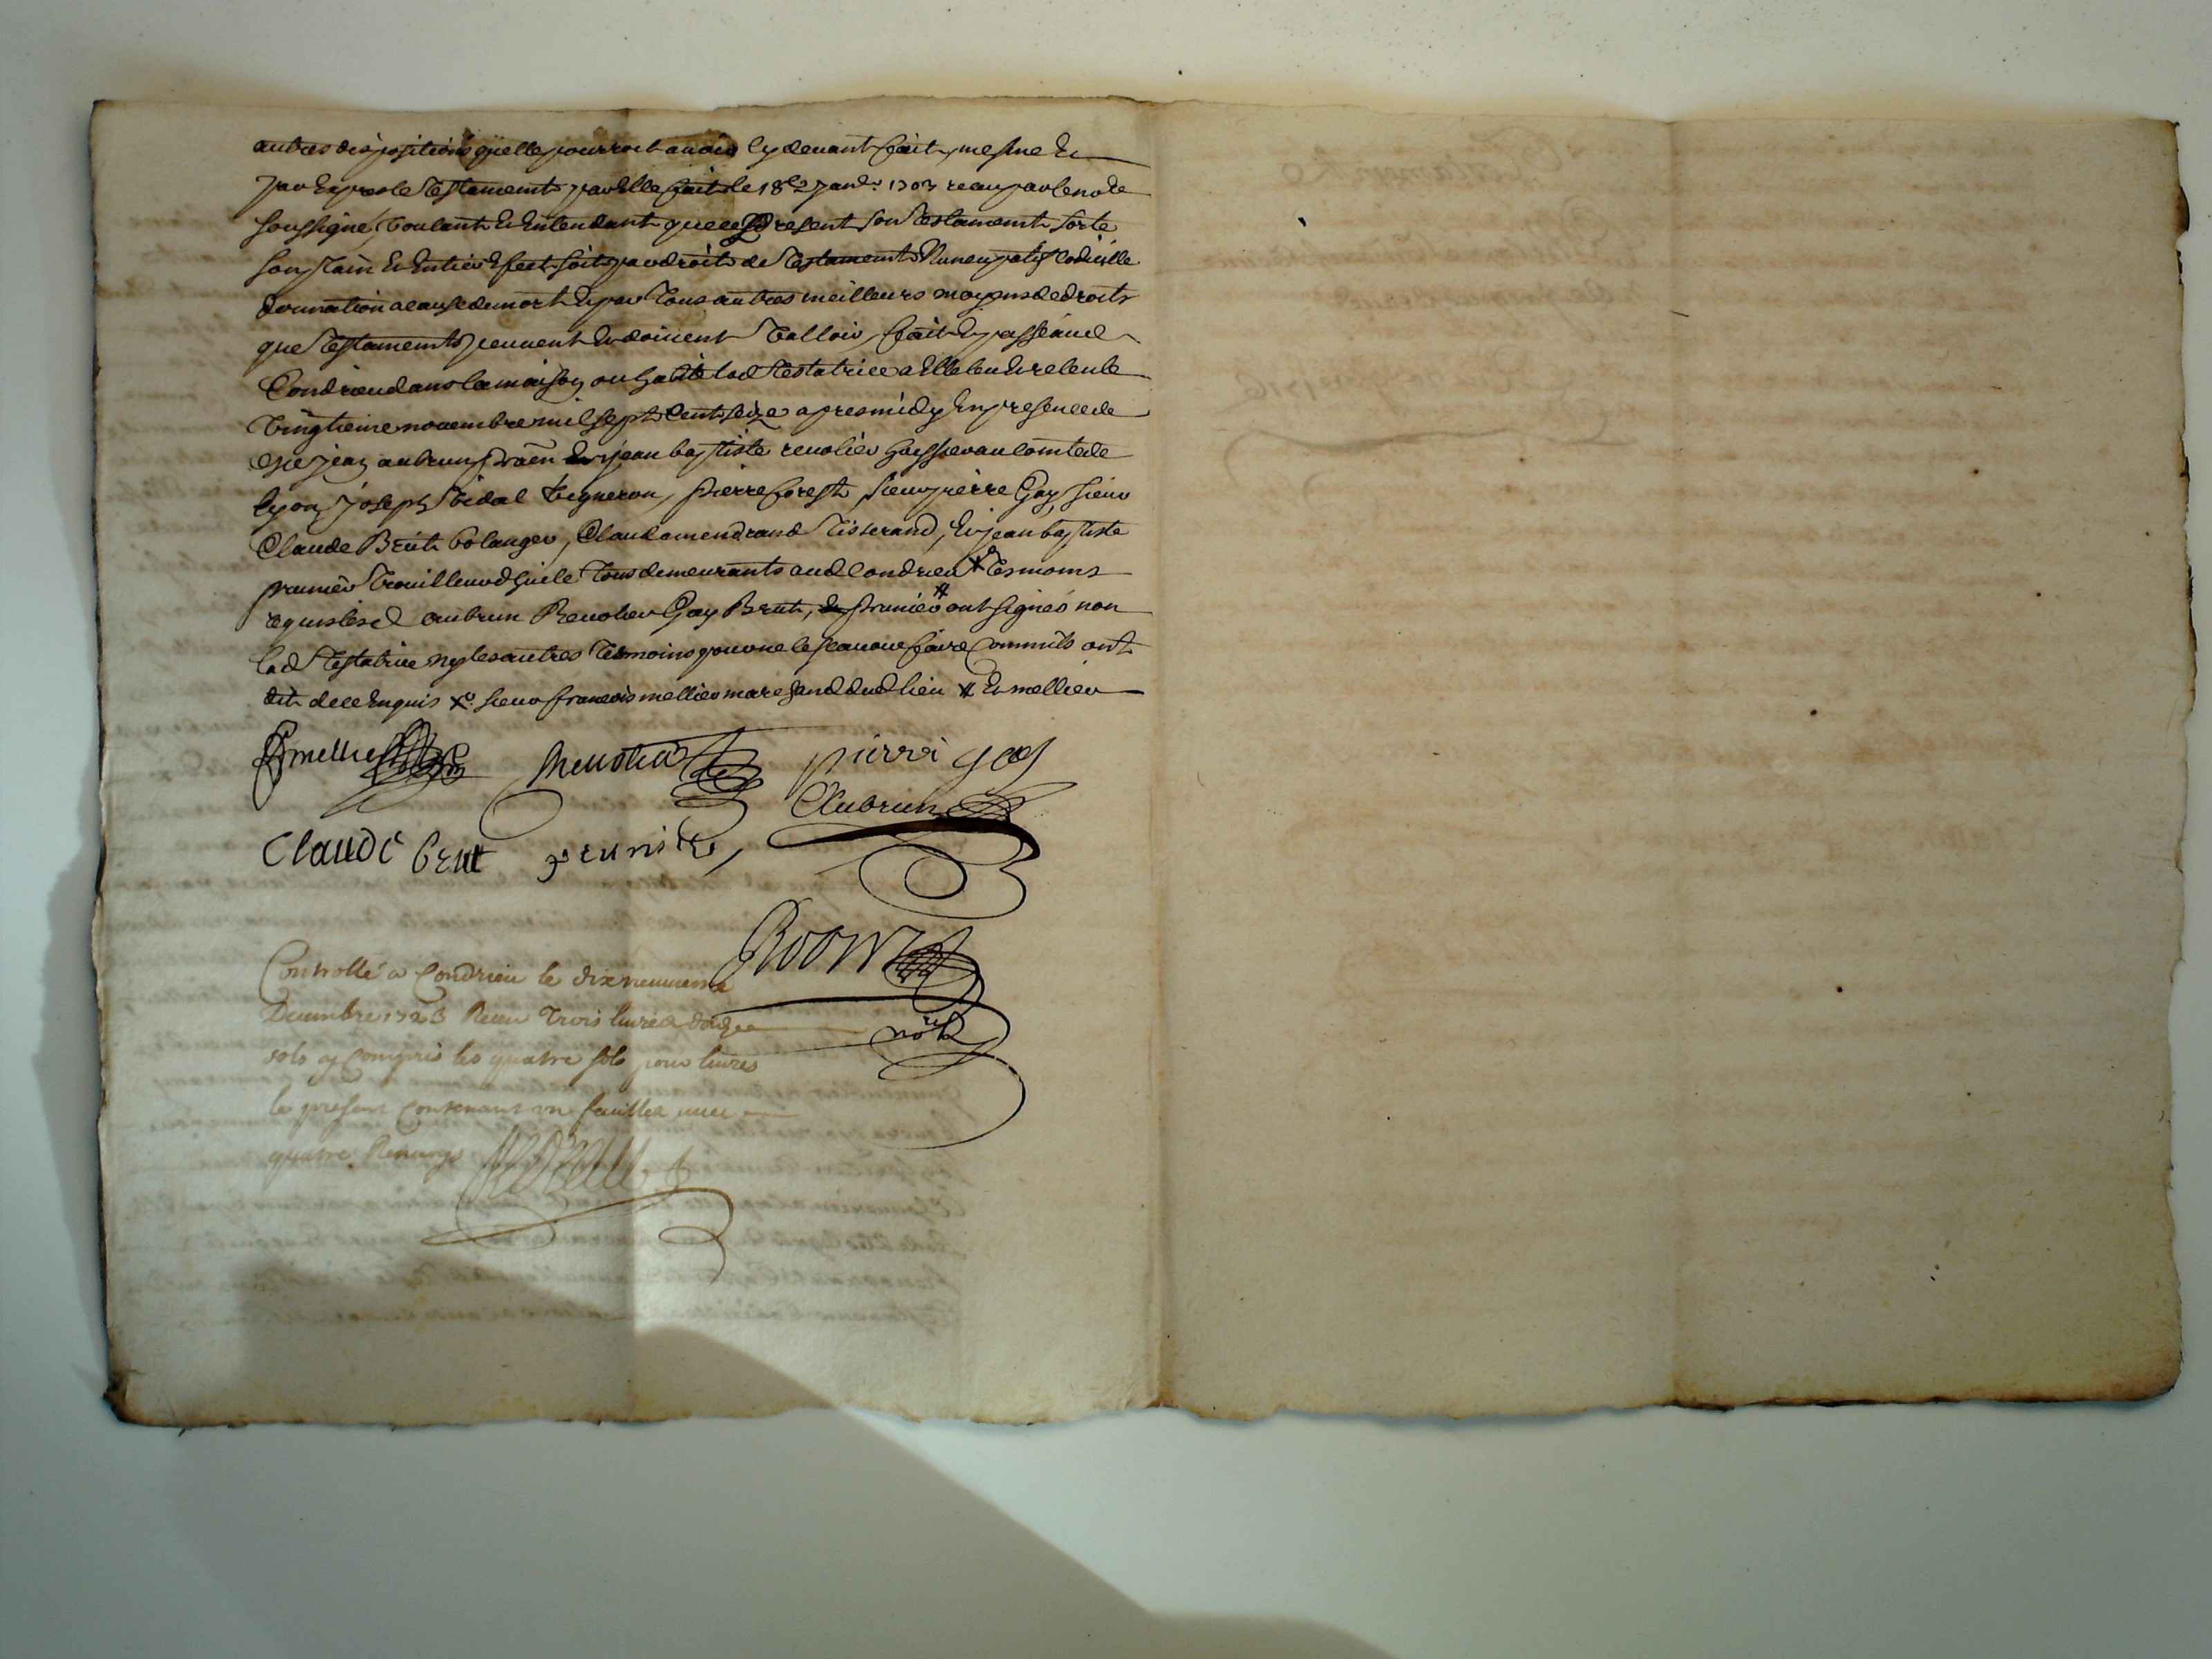 autres dispositions qu'elle pourroit avoir cy devant fait, mesme Et
par Expres le Testament par Elle fait le 18e Janv.r 1703 receu par le no.re
soussigné, voulant Et Entendant que ce present son Testament sorte
son plain Et Entier Efect soit par droit de Testament Nuncupatif codicille
donnation a cause de mort Et par Tous autres meilleurs moyens de droits
que Testaments peuvent Et doivent Valloir, fait Et passé aud
Condrieu dans la maison ou habite lad Testatrice a Elle leu Et releu le
Vingtieme novembre mil sept Cent seize apres midy En presence de
Me jean aubrun Et jean baptiste revolier huyssier au Comte de
lyon, Joseph Vidal Vigneron, pierre forest, sieur pierre Gay, sieur
Claude Brut bolanger, Claud amendrand Tisserand, Et jean baptiste
prunier Trouilleur d'huile Tous demeurants aud Condrieu Tesmoins
requis lesd aubrun Revolier Gay Brut, prunier ont signés non
lad Testatrice ny les autres Tesmoins pour ne le scavoir faire Comm'ils ont
dit de ce Enquis x sieur francois mellier marchand dud lieu # Et mellier
mellier Revolier pierre gay
Aubrun
Claude brut prunier
Controllé a Condrieu le dix neuvieme
Decembre 1723 Receu Trois livres douze
sols y Compris les quatre sols pour livres
le present Contenant un feuillet avec
quatre Renvoys
nore